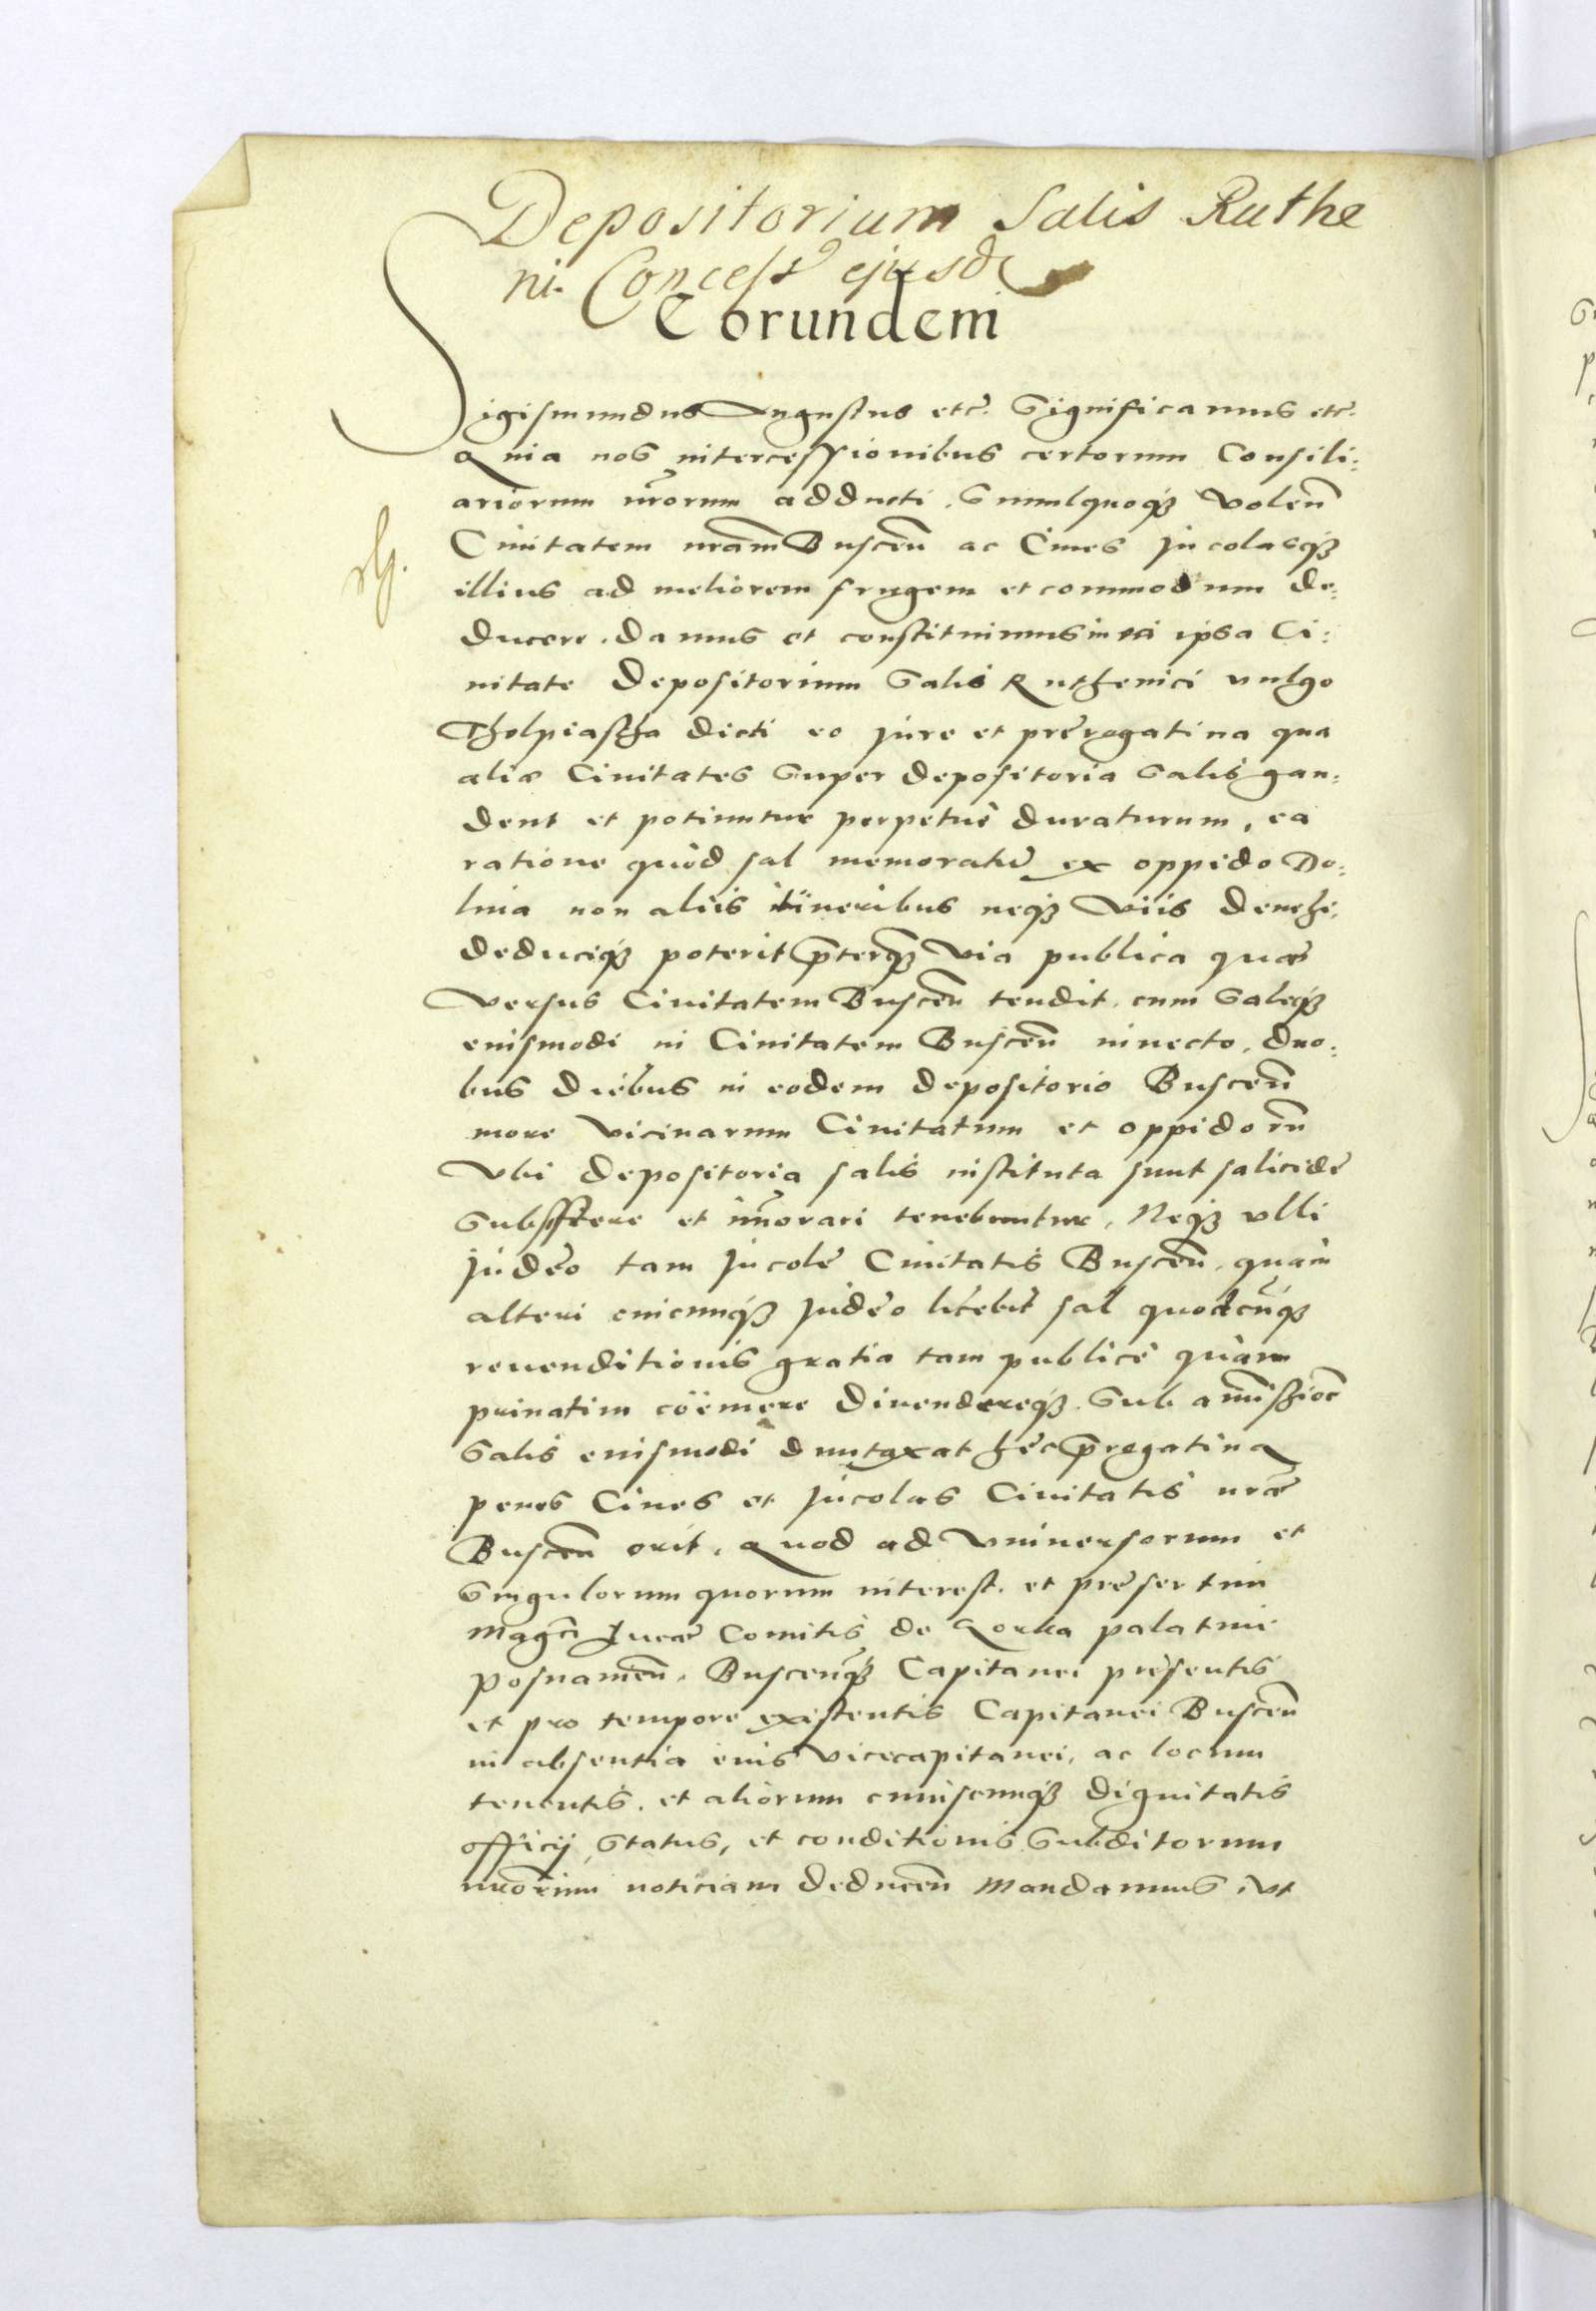 Depositorium Salis Ruthe
ni Concess9 ejusd
Eorundem
Sigismundus Augustus etc. Significamus etc.
Quia nos intercessionibus certorum Consili:
ariorum nrorum adducti. Simulquoq3 volen
Ciuitatem nram Buscen ac Ciues Incolasq3
illius ad meliorem frugem et commodum de:
ducere. damus et constituimus in ipsa Ci:
uitate depositorium Salis Ruthenici vulgo
Tholpiastha dicti eo Iure et prerogatiua qua
aliae Ciuitates super depositoria Salis gau:
dent et potiuntur perpetuè duraturum, ea
ratione quòd sal memoratu ex oppido Do:
lina non aliis itineribus neq3 viis deuehi,
deduciq3 poterit pterq3 via publica quae
versus Ciuitatem Buscen tendit. cum Saleq3
euismodi in Ciuitatem Buscen inuecto, duo:
bus diebus in eodem depositorio Buscen
more vicinarum Ciuitatum et oppidoru
vbi depositoria salis instituta sunt salicide
Subsistere et imorari tenebuntur, Neq3 vlli
Iudeo tam Incole Ciuitatis Buscen, quàm
alteri cuicunq3 Iudeo licebit sal quodcuq3
reuenditionis gratia tam publicè quàm
priuatim coëmere diuendereq3. Sub amissioe
Salis euismodi duntaxat hec pregatiua
penes Ciues et Incolas Ciuitatis nrae
Buscen erit. Quod ad vniuersorum et
Singulorum quorum interest. et presertim
Magci Lucae Comitis de Gorka palatini
Posnanien. Buscenq3 Capitanei presentis
et pro tempore existentis Capitanei Buscen
in absentia eius vicecapitanei, ac locum
tenentis. et aliorum cuiuscunq3 dignitatis
officij, Status, et conditionis Subditorum
nrorum noticiam deducen Mandamus, vt